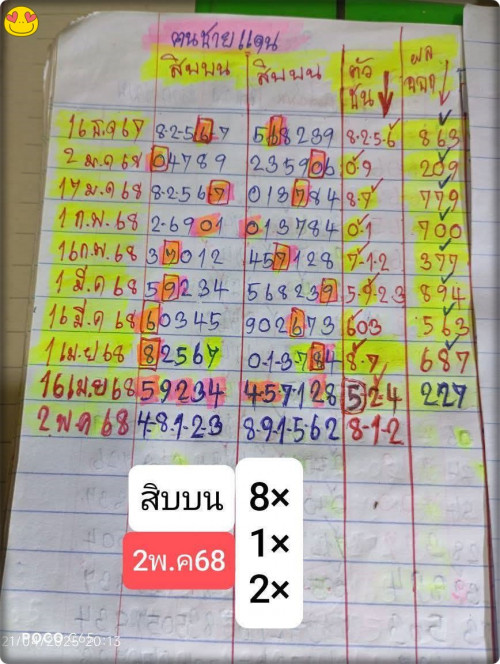 คนชายแดน
สิบบน สิบบน ตัว ผล
ชน ออก
16 ธ.ค 67 8-2-5-6-7 568239 8-2-5-6 863
2 ม.ค 68 04789 235906 0-9 209
17 ม.ค 68 8-2567 018784 8-7 779
1 ก.พ. 68 2-6901 013784 0-1 700
16 ก.พ. 68 37012 457128 7-1-2 377
1 มี.ค 68 59234 568239 5-9-2-3 894
16 มี.ค 68 60345 902673 603 563
1 เม.ย 68 82567 0-1-3784 8-7 687
16 เม.ย 68 59234 4-57128 5/24 227
2 พ.ค 68 4-8-1-2-3 8-9-1-5-62 8-1-2
สิบบน 8×
2พ.ค68 1×
2×
POCO C65
21/04/2025 20:13